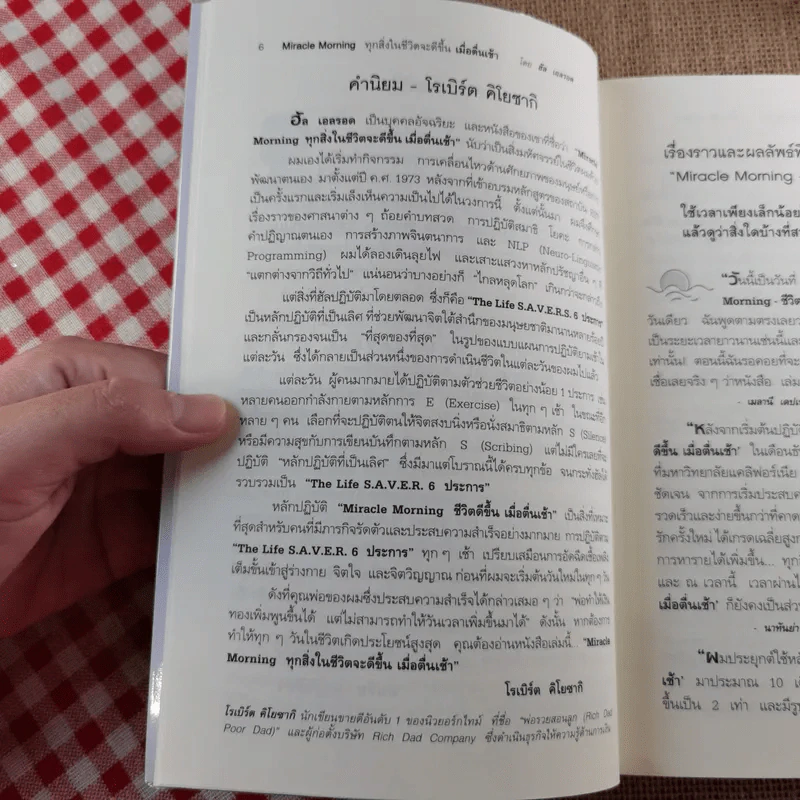 6 Miracle Morning ทุกสิ่งในชีวิตจะดีขึ้น เมื่อตื่นเช้า
โดย ฮัล เอลรอด
คำนิยม - โรเบิร์ต คิโยซากิ
ฮัล เอลรอด เป็นบุคคลอัจฉริยะ และหนังสือของเขาที่ชื่อว่า "Miracle
Morning ทุกสิ่งในชีวิตจะดีขึ้น เมื่อตื่นเช้า" นับว่าเป็นสิ่งมหัศจรรย์ในชีวิต
ผมเองได้เริ่มทำกิจกรรม การเคลื่อนไหวด้านศักยภาพของมนุษย์
พัฒนาตนเอง มาตั้งแต่ปี ค.ศ. 1973 หลังจากที่เข้าอบรมหลักสูตรของสถาบัน
เป็นครั้งแรกและเริ่มเล็งเห็นความเป็นไปได้ในวงการนี้ ตั้งแต่นั้นมา
เรื่องราวของศาสนาต่าง ๆ ถ้อยคำบทสวด การปฏิบัติสมาธิ โยคะ
คำปฏิญาณตนเอง การสร้างภาพจินตนาการ และ NLP (Neuro-Linguistic
Programming) ผมได้ลองเดินลุยไฟ และเสาะแสวงหาหลักปรัชญาอื่น ๆ ที่
"แตกต่างจากวิถีทั่วไป" แน่นอนว่าบางอย่างก็ "ไกลหลุดโลก" เกินกว่าจะกล่าวถึง
แต่สิ่งที่ฮัลปฏิบัติมาโดยตลอด ซึ่งก็คือ "The Life S.A.V.E.R.S. 6 ประการ"
เป็นหลักปฏิบัติที่เป็นเลิศ ที่ช่วยพัฒนาจิตใต้สำนึกของมนุษยชาติมานานหลายร้อยปี
และกลั่นกรองจนเป็น "ที่สุดของที่สุด" ในรูปของแบบแผนการปฏิบัติยามเช้าใน
แต่ละวัน ซึ่งได้กลายเป็นส่วนหนึ่งของการดำเนินชีวิตในแต่ละวันของผมไปแล้ว
แต่ละวัน ผู้คนมากมายได้ปฏิบัติตามตัวช่วยชีวิตอย่างน้อย 1 ประการ เช่น
หลายคนออกกำลังกายตามหลักการ E (Exercise) ในทุก ๆ เช้า ในขณะที่อีก
หลาย ๆ คน เลือกที่จะปฏิบัติตนให้จิตสงบนิ่งหรือนั่งสมาธิตามหลัก S (Silence)
หรือมีความสุขกับการเขียนบันทึกตามหลัก S (Scribing) แต่ไม่มีใครเลยที่จะ
ปฏิบัติ "หลักปฏิบัติที่เป็นเลิศ" ซึ่งมีมาแต่โบราณนี้ได้ครบทุกข้อ จนกระทั่งฮัลได้
รวบรวมเป็น "The Life S.A.V.E.R. 6 ประการ"
หลักปฏิบัติ "Miracle Morning ชีวิตดีขึ้น เมื่อตื่นเช้า" เป็นสิ่งที่เหมาะ
ที่สุดสำหรับคนที่มีภารกิจรัดตัวและประสบความสำเร็จอย่างมากมาย การปฏิบัติตาม
"The Life S.A.V.E.R. 6 ประการ" ทุก ๆ เช้า เปรียบเสมือนการอัดฉีดเชื้อเพลิง
เต็มขั้นเข้าสู่ร่างกาย จิตใจ และจิตวิญญาณ ก่อนที่ผมจะเริ่มต้นวันใหม่ในทุก ๆ วัน
ดังที่คุณพ่อของผมซึ่งประสบความสำเร็จได้กล่าวเสมอ ๆ ว่า "พ่อทำให้เงิน
ทองเพิ่มพูนขึ้นได้ แต่ไม่สามารถทำให้วันเวลาเพิ่มขึ้นมาได้" ดังนั้น หากต้องการ
ทำให้ทุก ๆ วันในชีวิตเกิดประโยชน์สูงสุด คุณต้องอ่านหนังสือเล่มนี้... "Miracle
Morning ทุกสิ่งในชีวิตจะดีขึ้น เมื่อตื่นเช้า"
โรเบิร์ต คิโยซากิ
โรเบิร์ต คิโยซากิ นักเขียนขายดีอันดับ 1 ของนิวยอร์กไทม์ ที่ชื่อ "พ่อรวยสอนลูก (Rich Dad
Poor Dad)" และผู้ก่อตั้งบริษัท Rich Dad Company ซึ่งดำเนินธุรกิจให้ความรู้ด้านการเงิน
เรื่องราวและผลลัพธ์
"Miracle Morning -
ใช้เวลาเพียงเล็กน้อย
แล้วดูว่าสิ่งใดบ้างที่
"วันนี้เป็นวันที่
Morning -
วันเดียว ฉันพูดตามตรงเลย
เป็นระยะเวลายาวนานเช่นนี้
เท่านั้น! ตอนนี้ฉันรอคอยที่จะ
เชื่อเลยจริง ๆ ว่าหนังสือ
- เมลานี
"หลังจากเริ่มต้นปฏิบัติ
ดีขึ้น เมื่อตื่นเช้า' ในเดือน
ที่มหาวิทยาลัยแคลิฟอร์เนีย
ชัดเจน จากการเริ่มประสบ
รวดเร็วและง่ายขึ้นกว่าที่คาด
รักครั้งใหม่ ได้เกรดเฉลี่ยสูง
การหารายได้เพิ่มขึ้น...
และ ณ เวลานี้ เวลาผ่านไป
เมื่อตื่นเช้า' ก็ยังคงเป็นส่วน
"ผมประยุกต์ใช้
เช้า' มาประมาณ 10
ขึ้นเป็น 2 เท่า และมี